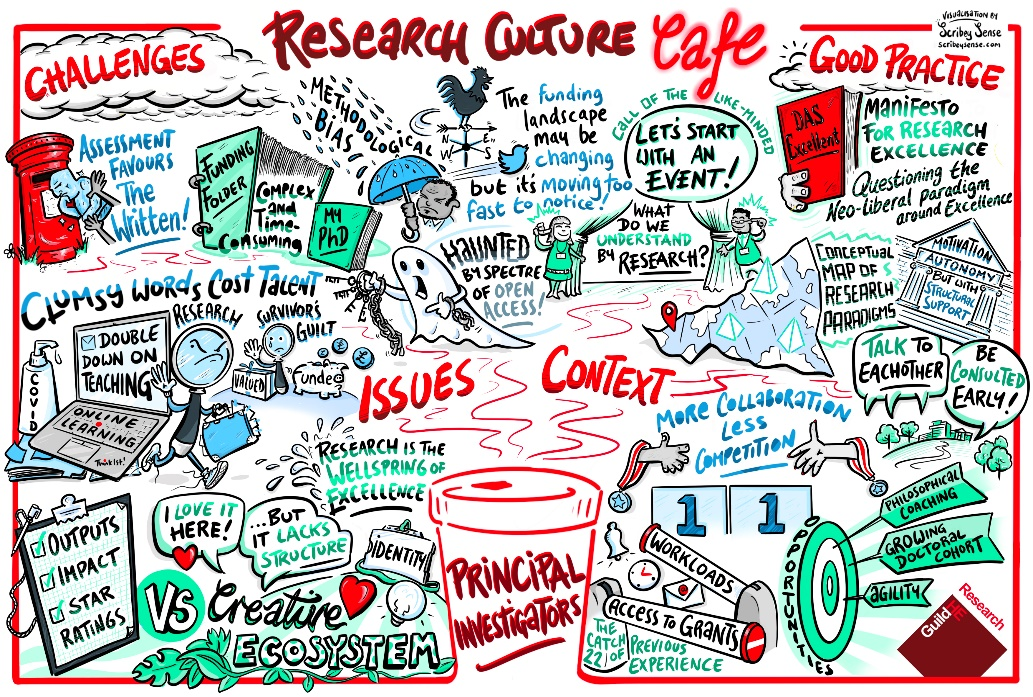 Research Culture Cafe
VISUALISATION BY
Scribey Sense
scribeysense.com
CHALLENGES
ASSESSMENT
FAVOURS
The
Written!
FUNDING
FOLDER
COMPLEX
AND
TIME-
CONSUMING
MY
PhD
METHODOLOGICAL
BIAS
N
E
S
W
The funding
landscape
may be
changing
but it's moving too
fast to notice!
CALL OF THE LIKE-MINDED
LET'S START
WITH AN
EVENT!
WHAT
DO WE
UNDERSTAND
BY RESEARCH?
GOOD PRACTICE
DAS
Excellent
MANIFESTO
FOR RESEARCH
EXCELLENCE
Questioning the
Neo-liberal paradigm
around Excellence
CONCEPTUAL
MAP OF
RESEARCH
PARADIGMS
MOTIVATION
AUTONOMY
BUT WITH
STRUCTURAL
SUPPORT
TALK TO
EACHOTHER
BE
CONSULTED
EARLY!
HAUNTED
BY SPECTRE
OF OPEN
ACCESS!
CLUMSY WORDS COST TALENT
COVID
DOUBLE
DOWN ON
TEACHING
ONLINE
LEARNING
ThinkIst!
RESEARCH
SURVIVOR'S
GUILT
VALUED
Funded
ISSUES
CONTEXT
MORE COLLABORATION
LESS
COMPETITION
1 1
RESEARCH IS THE
WELLSPRING OF
EXCELLENCE
OUTPUTS
IMPACT
STAR
RATINGS
I LOVE IT
HERE!
...BUT
IT LACKS
STRUCTURE
IDENTITY
VS Creature
ECOSYSTEM
PRINCIPAL
INVESTIGATORS
WORKLOADS
ACCESS TO GRANTS
THE
CATCH
22 OF
PREVIOUS
EXPERIENCE
OPPORTUNITIES
PHILOSOPHICAL
COACHING
GROWING
DOCTORAL
COHORT
AGILITY
GuildHE
Research